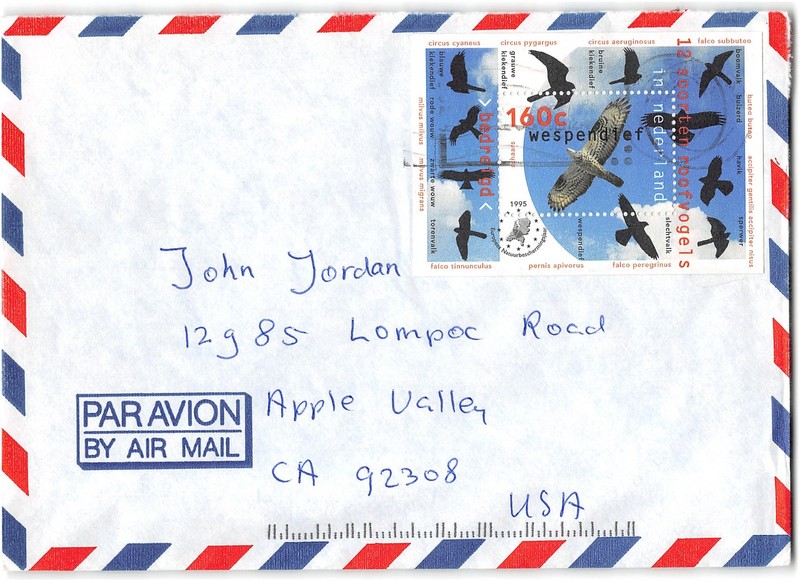 circus cyaneus
circus pygargus
circus aeruginosus
falco subbuteo
blauwe kiekendief
grauwe kiekendief
bruine kiekendief
boomvalk
12 soorten roofvogels
in nederland
160c
wespendief
> bedreigd <
rode wouw
milvus milvus
zwarte wouw
milvus migrans
torenvalk
falco tinnunculus
buizerd
buteo buteo
havik
accipiter gentilis
sperwer
accipiter nisus
slechtvalk
falco peregrinus
wespendief
pernis apivorus
1995
Natuurbeschermingsjaar
John Jordan
12985 Lompoc Road
Apple Valley
CA 92308
USA
PAR AVION
BY AIR MAIL